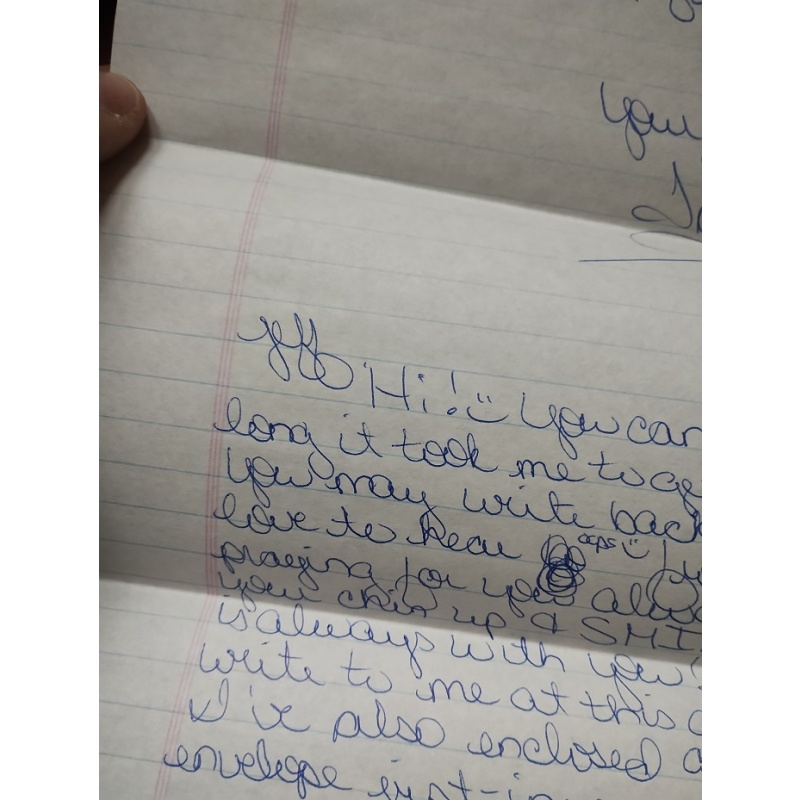 you
Hi! ü you can
long it took me to ge
you may write back
love to hear oops ü
praying for you alwa
your chin up & SMI
is always with you!
write to me at this
I've also enclosed a
envelope just-in